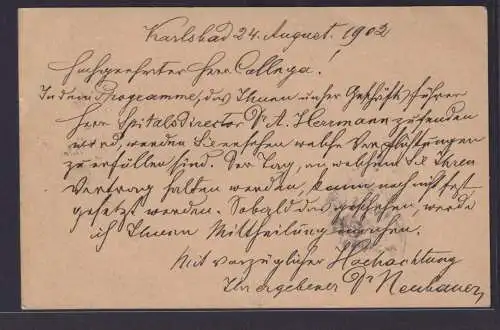 Karlsbad 24. August. 1902
Hochgeehrter Herr Collega!
In dem Programme, das Ihnen unser Geschäftsführer
Herr Spitalsdirector Dr A. Herrmann zusenden
wird, werden Sie ersehen welche Verpflichtungen
zu erfüllen sind. Der Tag, an welchem Sie Ihren
Vortrag halten werden, kann noch nicht fest
gesetzt werden. Sobald das geschehen, werde
ich Ihnen Mittheilung machen.
Mit vorzüglicher Hochachtung
Ihr ergebener Dr Neubauer